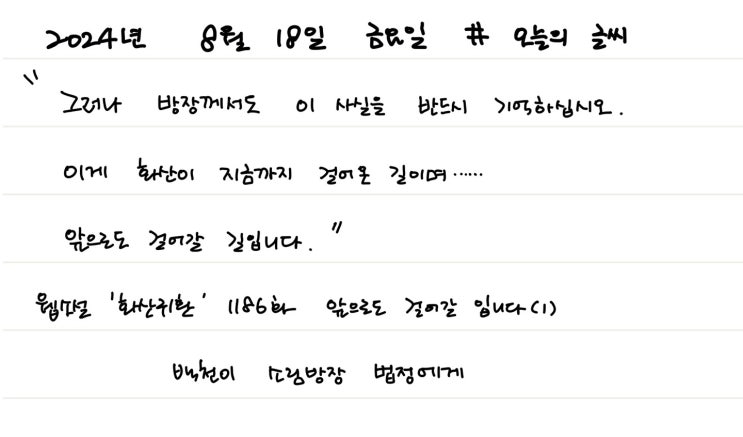 2024년 8월 18일 금요일 # 오늘의 글씨
"그러나 방장께서도 이 사실을 반드시 기억하십시오.
이게 화산이 지금까지 걸어온 길이며……
앞으로도 걸어갈 길입니다."
웹소설 '화산귀환' 1186화 앞으로도 걸어갈 입니다(1)
백천이 소림방장 법정에게